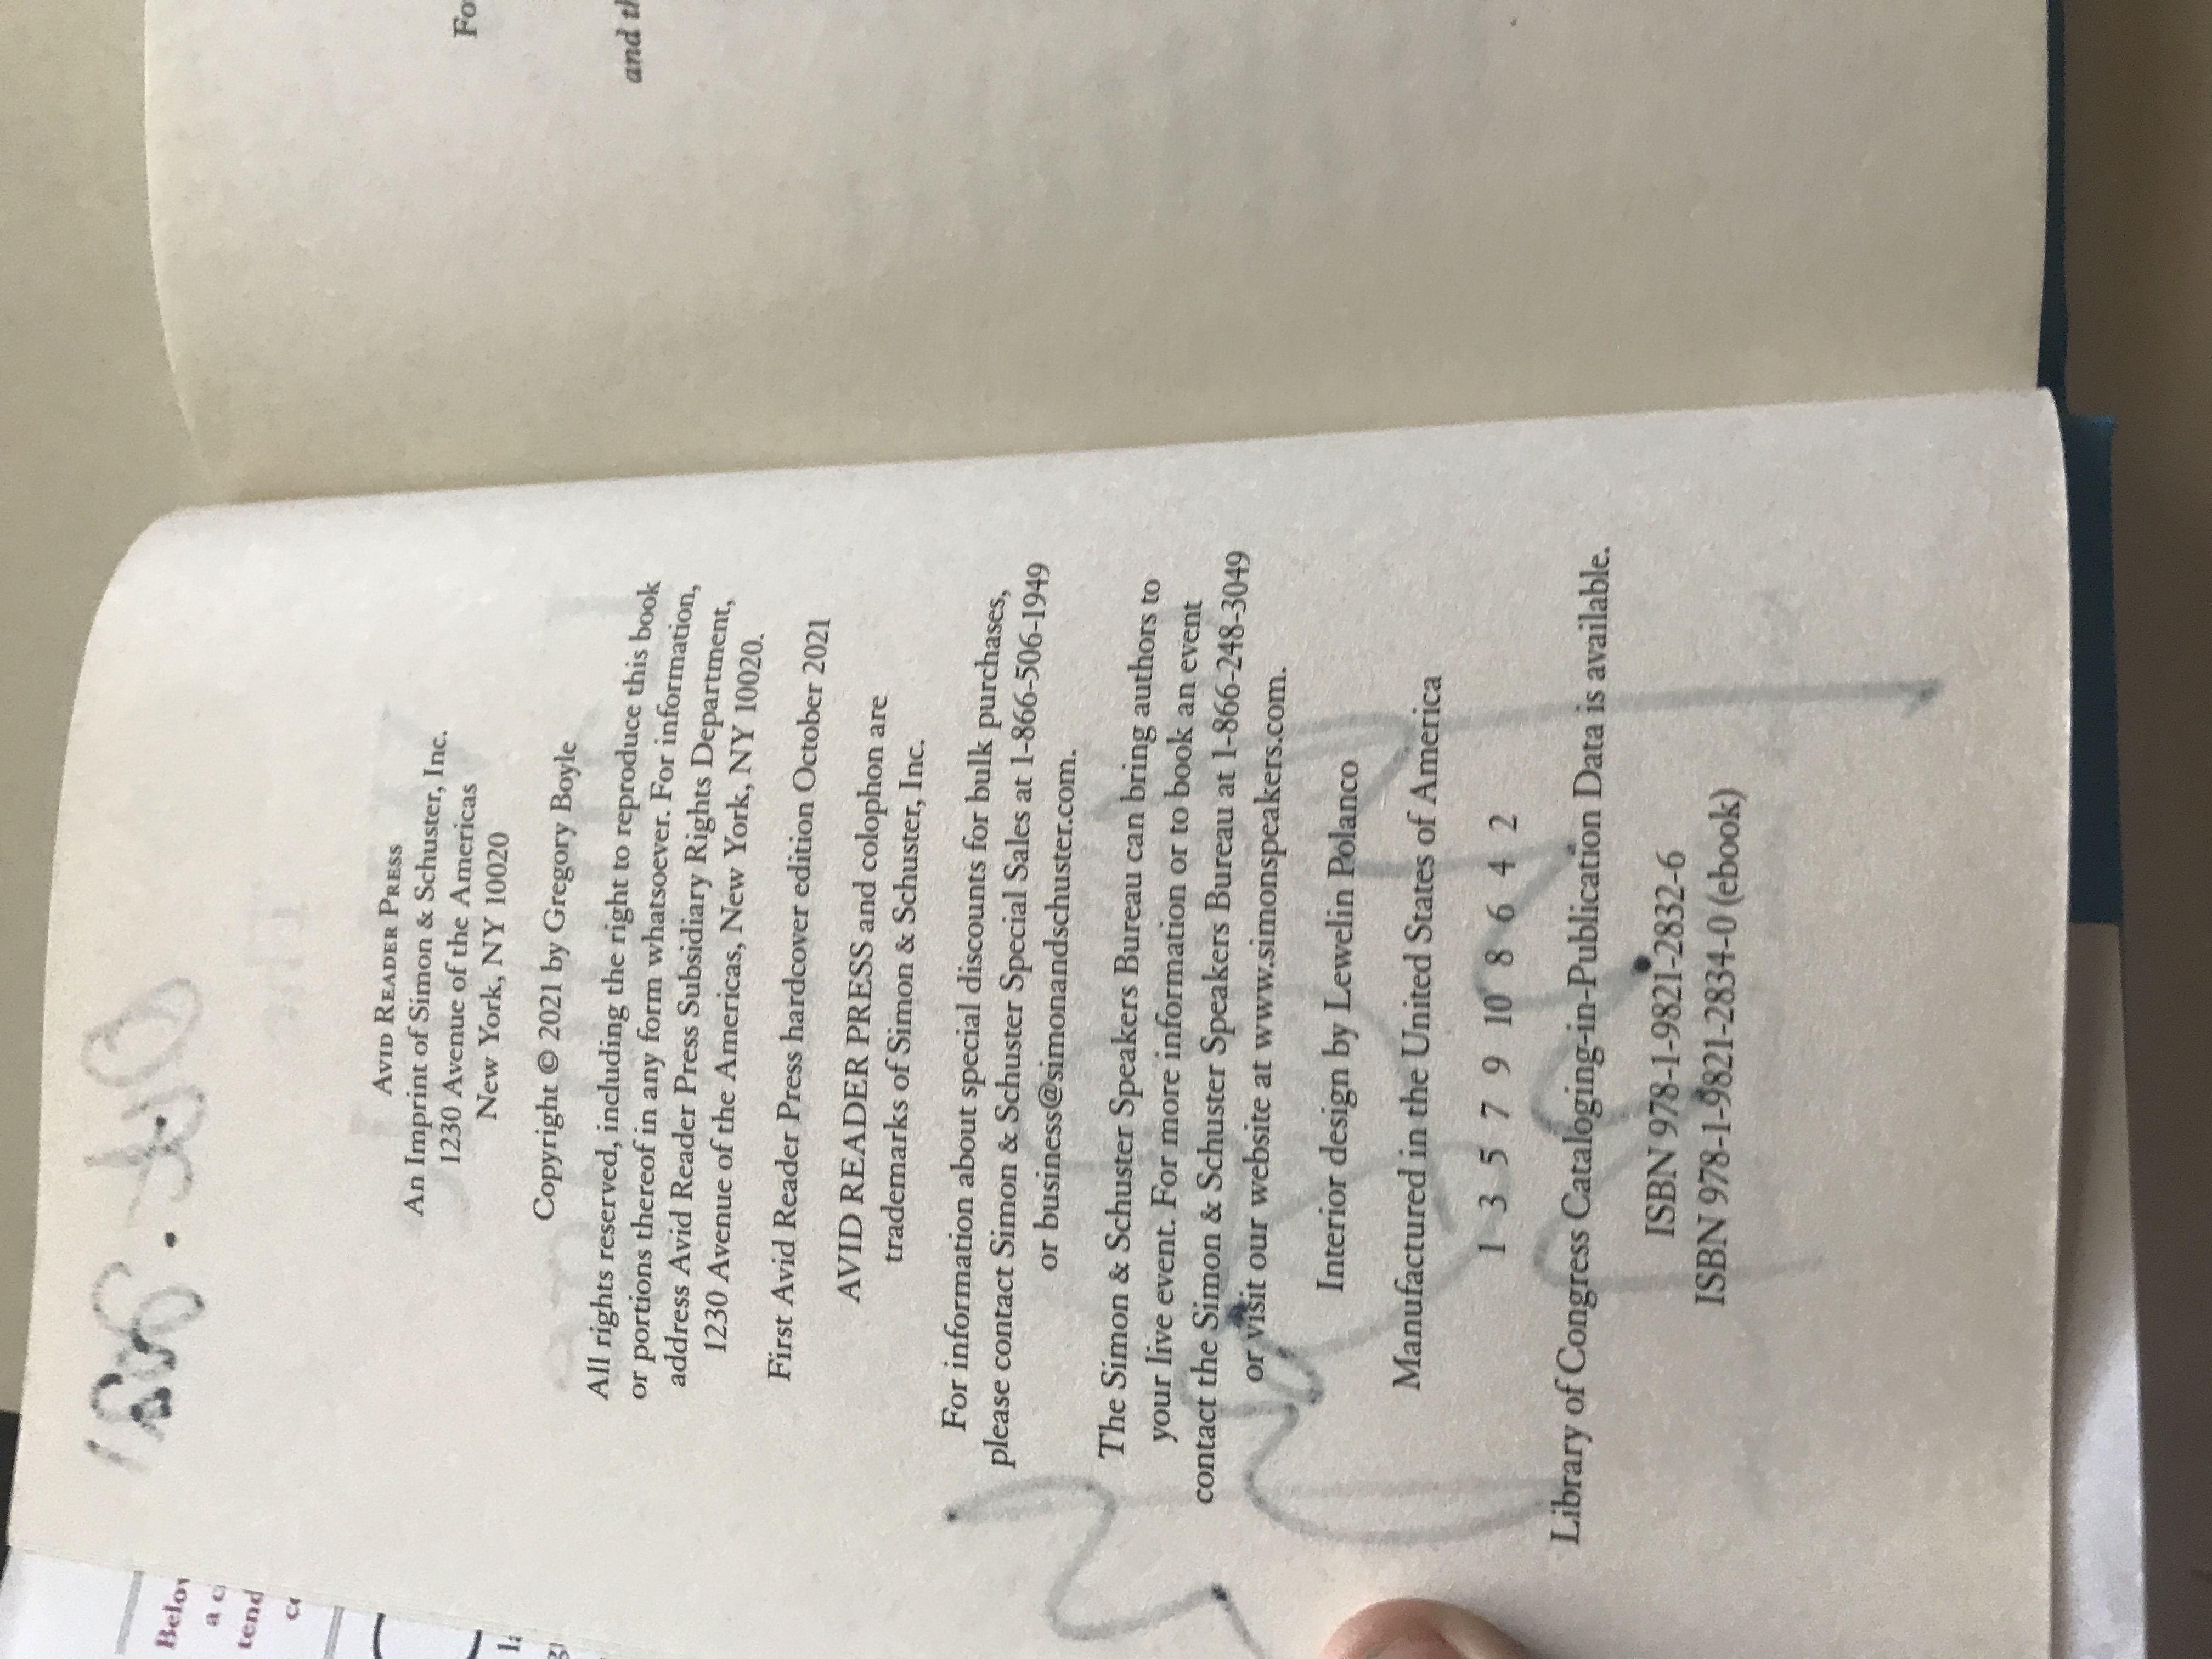 AVID READER PRESS
An Imprint of Simon & Schuster, Inc.
1230 Avenue of the Americas
New York, NY 10020
Copyright © 2021 by Gregory Boyle
All rights reserved, including the right to reproduce this book
or portions thereof in any form whatsoever. For information,
address Avid Reader Press Subsidiary Rights Department,
1230 Avenue of the Americas, New York, NY 10020.
First Avid Reader Press hardcover edition October 2021
AVID READER PRESS and colophon are
trademarks of Simon & Schuster, Inc.
For information about special discounts for bulk purchases,
please contact Simon & Schuster Special Sales at 1-866-506-1949
or business@simonandschuster.com.
The Simon & Schuster Speakers Bureau can bring authors to
your live event. For more information or to book an event
contact the Simon & Schuster Speakers Bureau at 1-866-248-3049
or visit our website at www.simonspeakers.com.
Interior design by Lewelin Polanco
Manufactured in the United States of America
1 3 5 7 9 10 8 6 4 2
Library of Congress Cataloging-in-Publication Data is available.
ISBN 978-1-9821-2832-6
ISBN 978-1-9821-2834-0 (ebook)
and